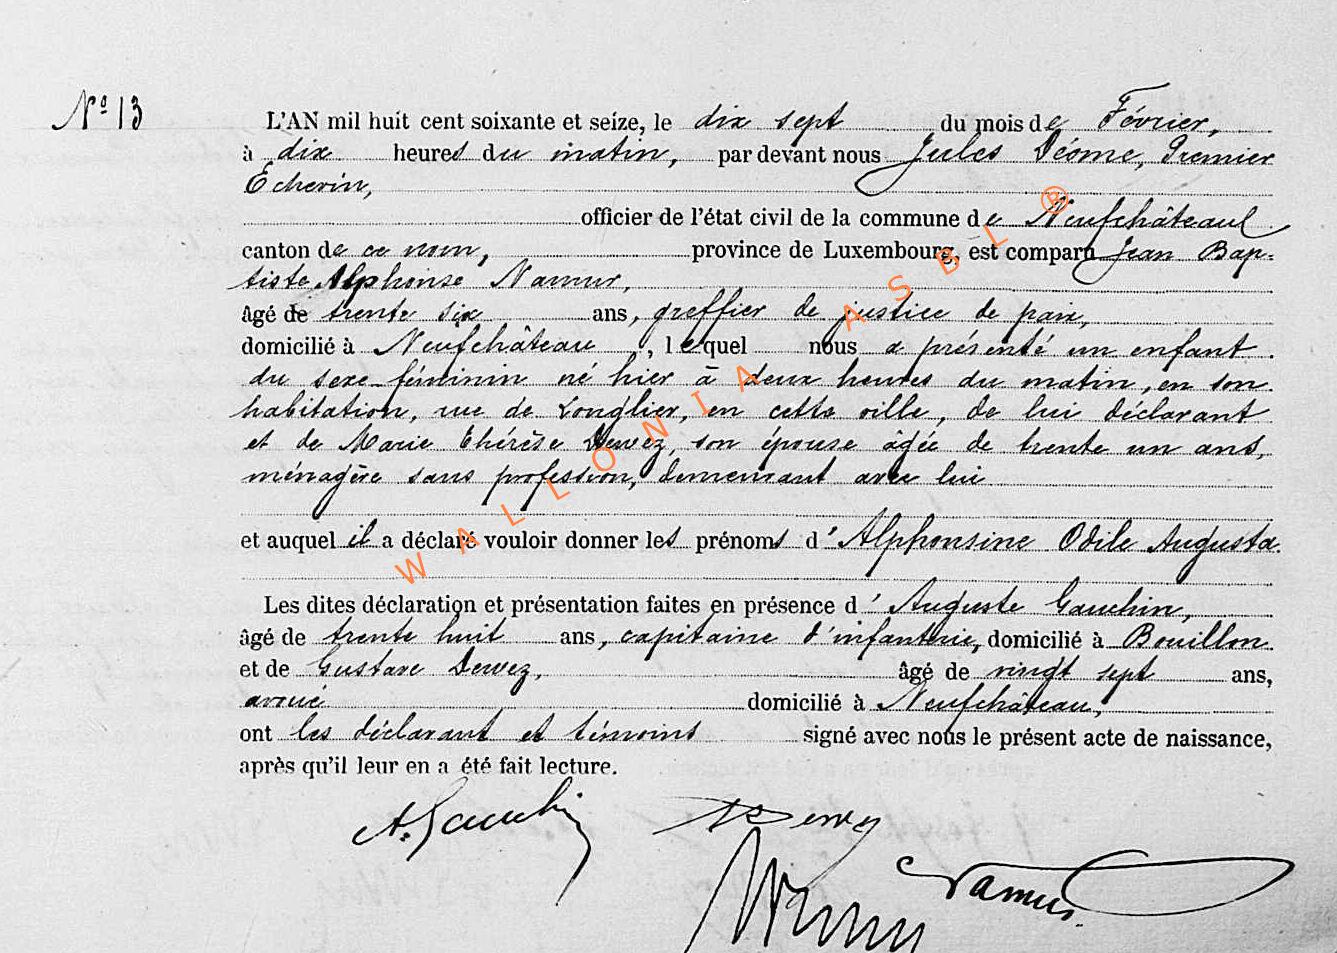 N° 13
L'AN mil huit cent soixante et seize, le dix sept du mois de Février,
à dix heures du matin, par devant nous Jules Déome, Premier
Echevin,
officier de l'état civil de la commune de Neufchâteau
canton de ce nom, province de Luxembourg, est comparu Jean Bap-
tiste Alphonse Namur,
âgé de trente six ans, greffier de justice de paix,
domicilié à Neufchâteau, lequel nous a présenté un enfant
du sexe féminin né hier à deux heures du matin, en son
habitation, rue de Longlier, en cette ville, de lui déclarant
et de Marie Thérèse Dewez, son épouse âgée de trente un ans,
ménagère sans profession, demeurant avec lui
et auquel il a déclaré vouloir donner les prénoms d'Alphonsine Odile Augusta.
Les dites déclaration et présentation faites en présence d'Auguste Gauchin,
âgé de trente huit ans, capitaine d'infanterie, domicilié à Bouillon
et de Gustave Dewez, âgé de vingt sept ans,
avoué domicilié à Neufchâteau,
ont les déclarant et témoins signé avec nous le présent acte de naissance,
après qu'il leur en a été fait lecture.
A. Gauchin Dewez
Namur
WALLONIA ASBL ®